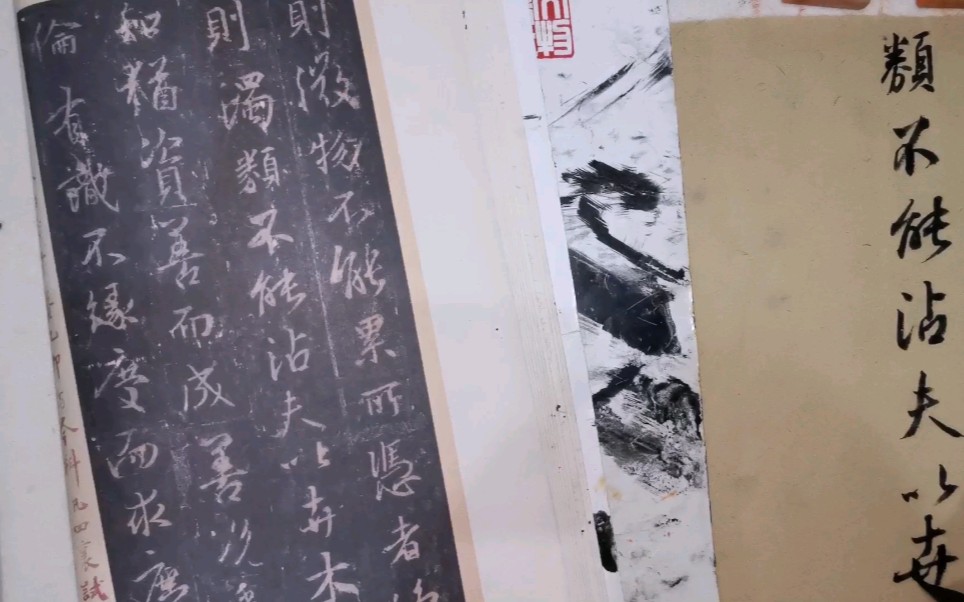 類不能沾夫以卉
則微物不能累所憑者
則濁類不能沾夫以卉木
知猶資善而成善況
倫有識不緣慶而求慶
試